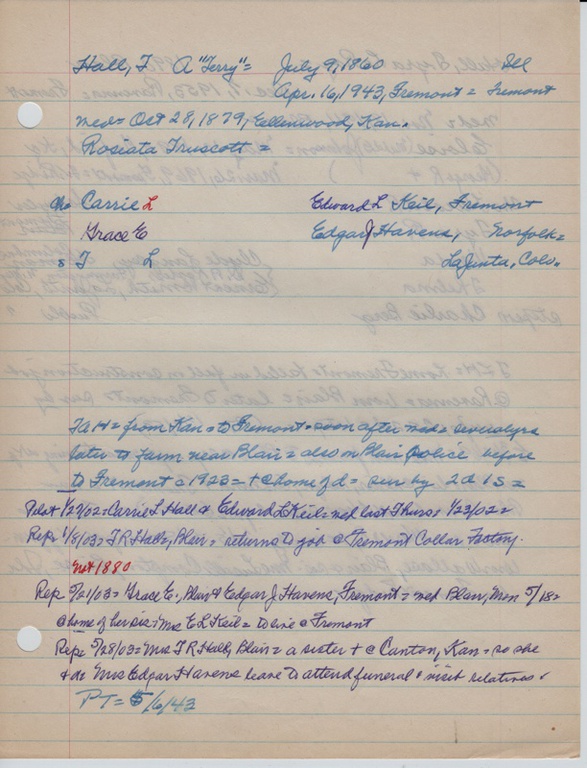 Hall, F A "Terry" = July 9, 1860 Ill
Apr. 16, 1943, Fremont = Fremont
med = Oct 28, 1879, Ellinwood, Kan.
Rosiata Truscott =
Carrie L Edward L Keil, Fremont
Grace E Edgar J Havens, Norfolk =
s F L LaJunta, Colo..
FAH = from Kan = to Fremont = soon after med = several yrs
later to farm near Blair = also on Blair Police before
to Fremont c 1923 = + @ home of d = sur by 2d 1S =
Pilot 1/27/02 = Carrie L Hall & Edward L Keil = med last Thurs = 1/23/02 =
Rep: 1/8/03 = F R Hall, Blair = returns to job @ Fremont Collar Factory.
not 1880
Rep 5/21/03 = Grace E., Blair & Edgar J Havens, Fremont = med Blair, Mon 5/18 =
@ home of her sis = Mrs E L Keil = to live @ Fremont
Rep: 5/28/03 = Mrs F R Hall, Blair = a sister + @ Canton, Kan = so she
+ d = Mrs Edgar Havens leave to attend funeral & visit relatives.
PT = 5/6/43